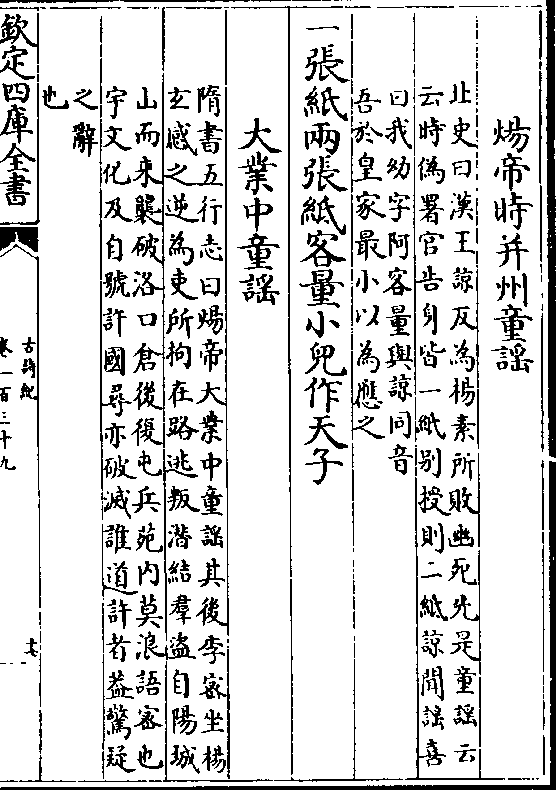 煬帝時并州童謡
北史曰漢王諒反為楊素所敗幽死先是童謡云
云時偽署官告身皆一紙别授則二紙諒聞謡喜
曰我幼字阿客量與諒同音
吾於皇家最小以為應之
一張紙兩張紙客量小兒作天子
大業中童謡
隋書五行志曰煬帝大業中童謡其後李密坐楊
玄感之逆為吏所拘在路逃叛潛結羣盜自陽城
山而來襲破洛口倉後復屯兵苑内莫浪語密也
宇文化及自號許國尋亦破滅誰道許者葢驚疑
之辭
也
欽定四庫全書
古詩紀
卷一百三十九